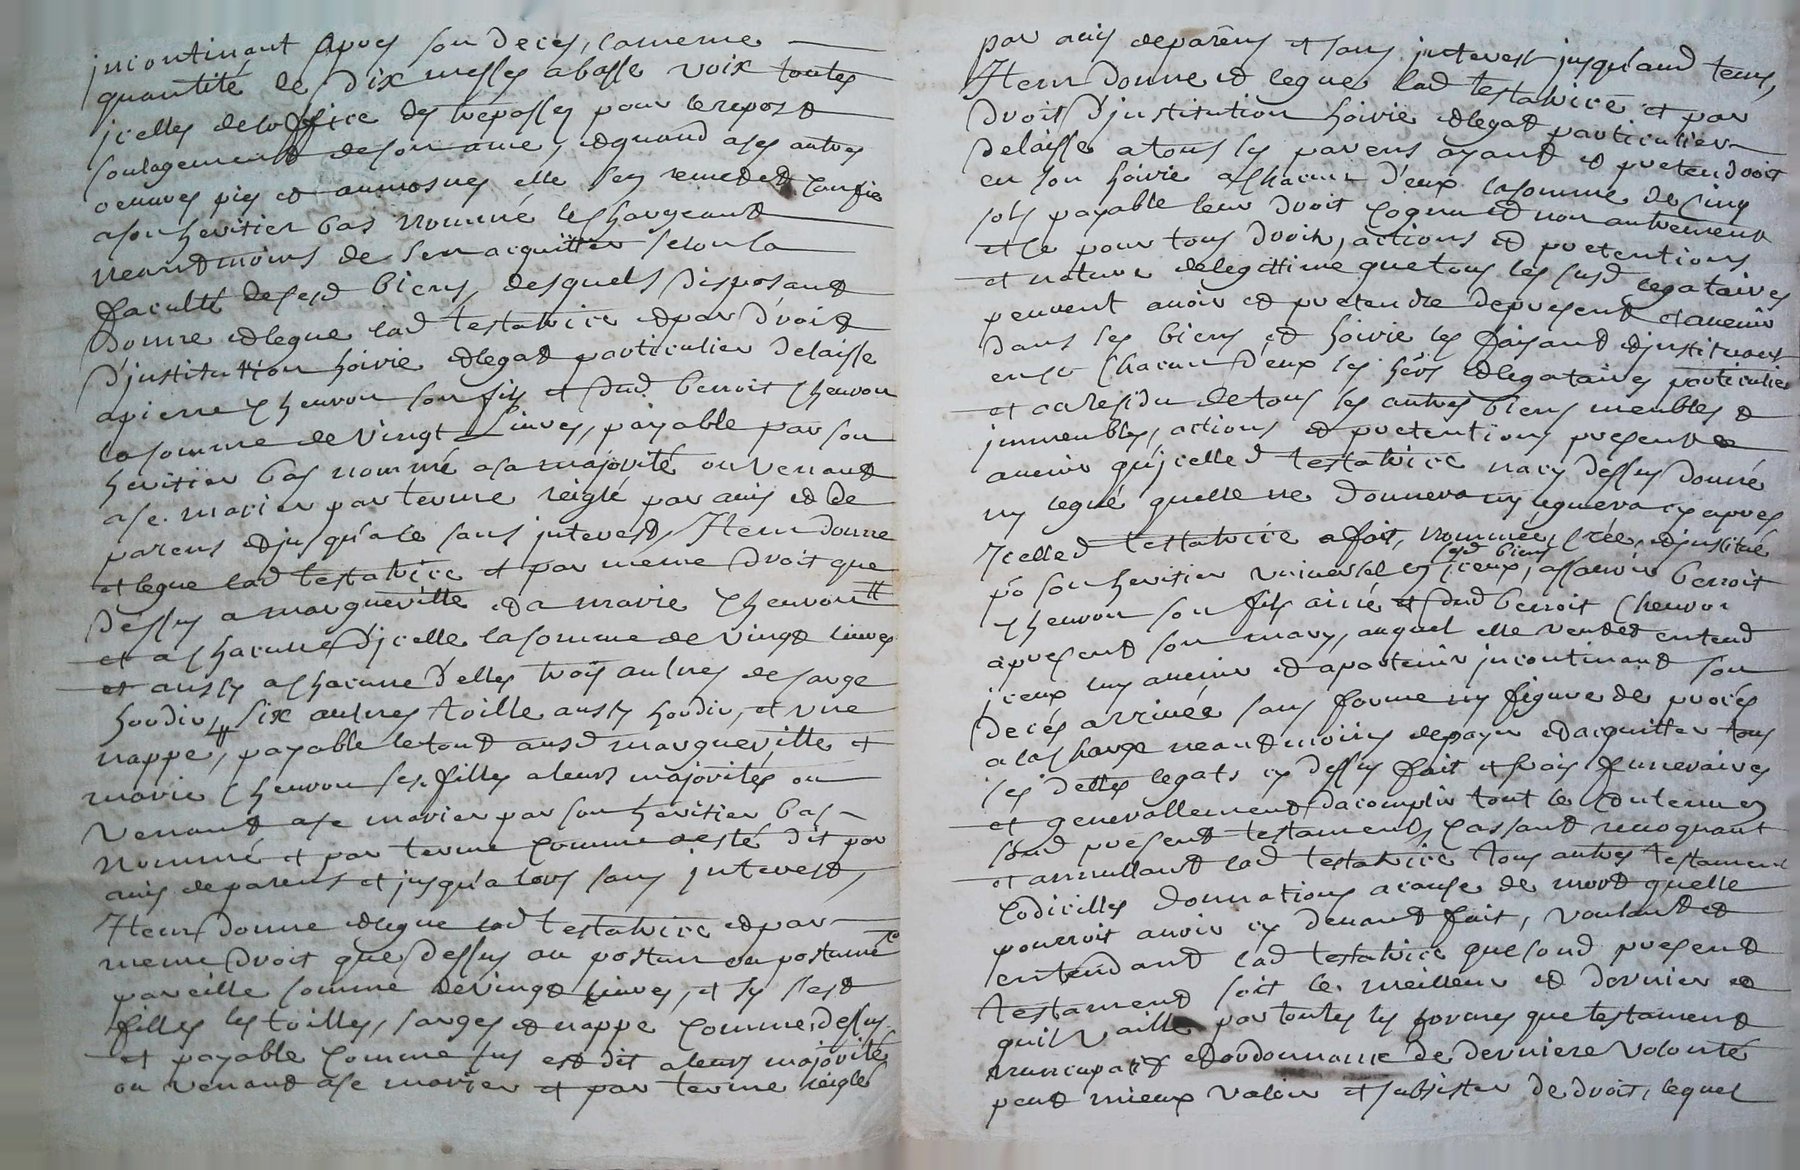 incontinant apres son deces, la meme
quantité de dix messes a basse voix toutes
jcelles de loffice des trepasses pour le repos et
soulagement de son ame, et quand a ses autres
oeuvres pies et aumosnes elle sen remet et confie
a son heritier bas nommé le chargeant
neantmoins de sen acquitter selon la
faculté de sesd biens, desquels disposant
donne et legue lad testatrice et par droit
d'jnstitution hoirie et legat particulier delaisse
a pierre chevron son fils et dud benoit chevron
la somme de vingt livres, payable par son
heritier bas nommé a sa majorité ou venant
a se marier par terme réiglé par avis de
parens et jusqu'a ce sans jnterest, Jtem donne
et legue lad testatrice et par meme droit que
dessus a margueritte et a marie chevron
et a chacune d'jcelle la somme de vingt livres
et aussy a chacune d'elles trois aulnes de sarge
hordir, six aulnes toille aussy hordir, et une
nappe, payable le tout ausd margueritte et
marie chevron ses filles a leurs majorités ou
venant a se marier par son heritier bas
nommé et par terme comme a esté dit par
avis de parens et jusqu'a lors sans jnterest,
Jtem donne et legue lad testatrice et par
meme droit que dessus au postum ou postume
pareille somme de vingt livres, et sy s'est
filles les toilles, sarges et nappe comme dessus
et payable comme sus est dit a leurs majorité
ou venant a se marier et par terme réiglé
par avis de parens et sans jnterest jusqu'aud tems,
Jtem donne et legue lad testatrice et par
droit d'jnstitution hoirie et legat particulier
delaisse a tous les parens ayant et pretendroit
en son hoirie a chacun d'eux la somme de cinq
sols payable leur droit cognu et non autrement
et ce pour tous droits, actions et pretentions
et nature de legittime que tous les susd legataires
peuvent avoir et pretendre de present et avenir
dans ses biens et hoirie les faisant et jnstituant
en ce chacun d'eux ses hérs et legataires particulier
et au residu de tous ses autres biens meubles et
jmmeubles, actions et pretentions present et
avenir qu'jcelled testatrice n'a cy dessus donné
ny legué quelle ne donnera ny leguera cy apres
Jcelled testatrice a fait, nommée, créé, et jnstitué
po son heritier universel en sesd biens jceux, assavoir benoit
chevron son fils ainé et dud benoit chevron
apresent son mary, auquel elle veut et entend
jceux luy avenir et apartenir jncontinant son
deces arrivée sans forme ny figure de procés
a la charge neantmoins de payer et acquitter tous
ses dettes legats cy dessus fait et frais funeraires
et generallement d'acomplir tout le contenu en
sond present testament, cassant revoquant
et annullant lad testatrice tous autres testament
codicilles donnations a cause de mort quelle
pourroit avoir cy devant fait, voulant et
entendant lad testatrice que sond present
testament soit le meilleur et dernier et
quil vaille par toutes les formes que testament
nuncupatif et ordonnance de derniere volonté
peut mieux valoir et subsister de droit, lequel